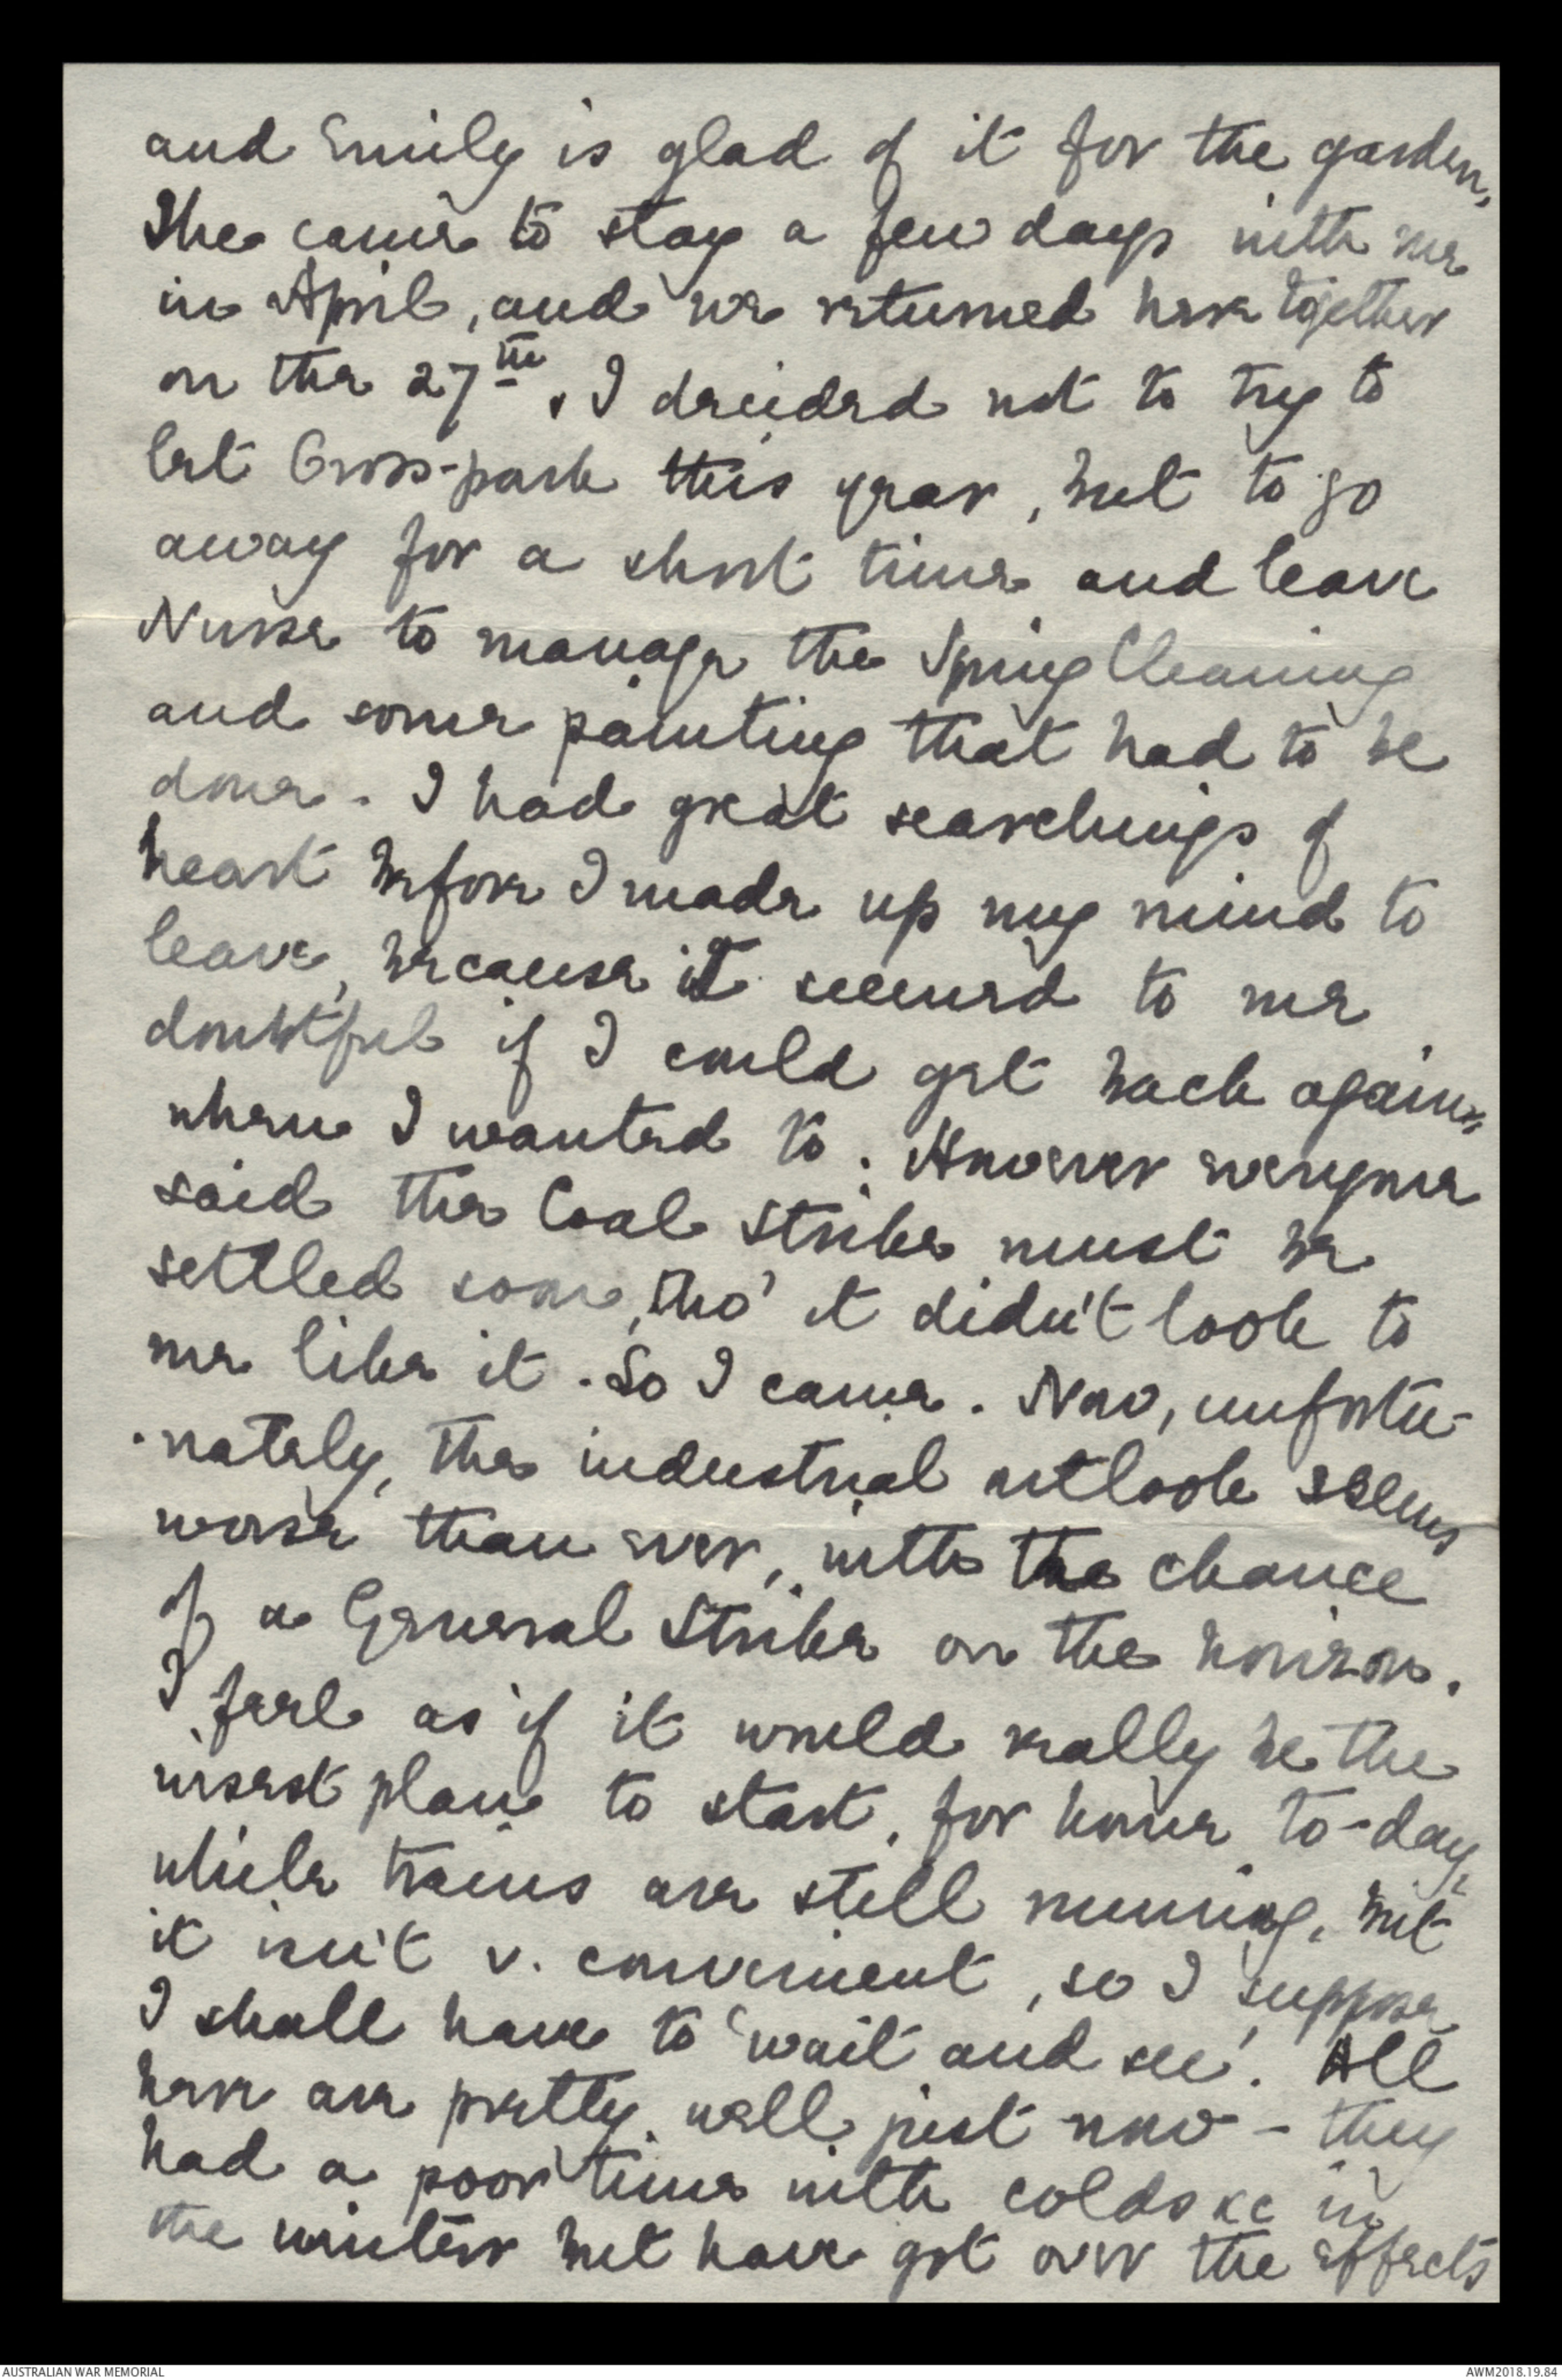 and Emily is glad of it for the garden,
She came to stay a few days with me
in April, and we returned here together
on the 27th. I decided not to try to
let Cross-park this year, but to go
away for a short time and leave
Nurse to manage the Spring Cleaning
and some painting that had to be
done. I had great searchings of
heart before I made up my mind to
leave, because it seemed to me
doubtful if I could get back again,
when I wanted to. However everyone
said the Coal Strike must be
settled soon, tho' it didn't look to
me like it. So I came. Now, unfortu-
-nately, the industrial outlook seems
worse than ever, with the chance
of a General Strike on the horizon.
I feel as if it would really be the
wisest plan to start, for home to-day,
while trains are still running, but
it isn't v. convenient, so I suppose
I shall have to 'wait and see'. All
here are pretty well just now - they
had a poor time with colds &c in
the winter but have got over the effects
AUSTRALIAN WAR MEMORIAL
AWM2018.19.84